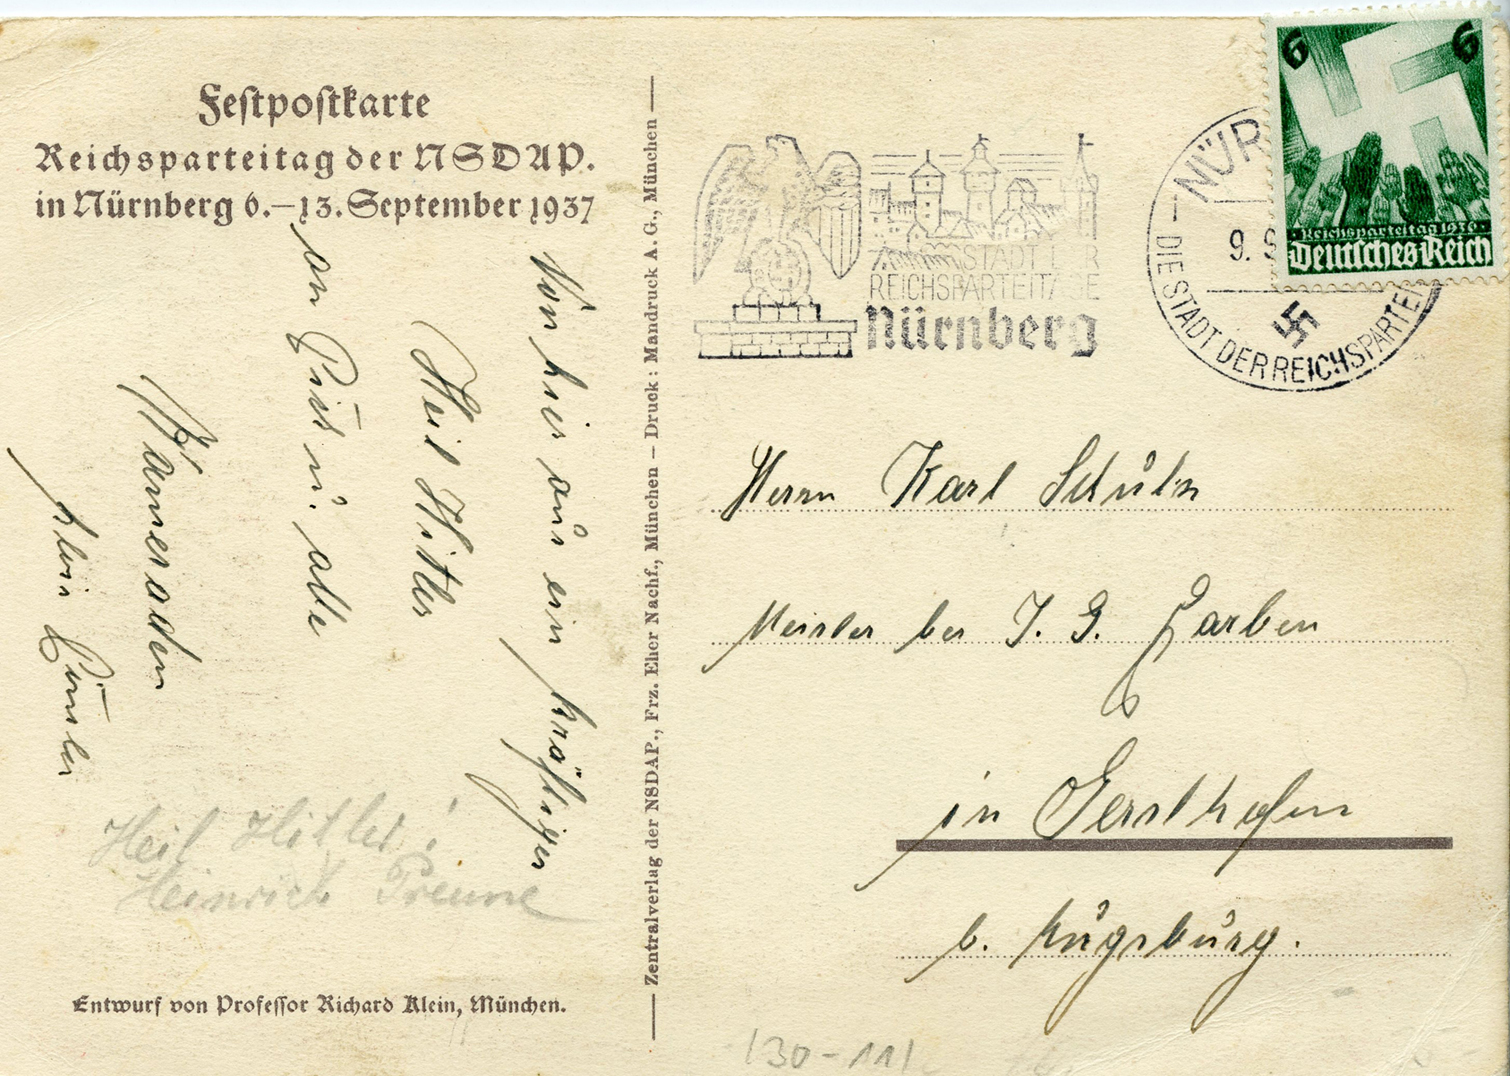 Festpostkarte
Reichsparteitag der NSDAP.
in Nürnberg 6.–13. September 1937
Von hier aus ein kräftiges
Heil Hitler
an u. alle
Kameraden
Heil Hitler!
Heinrich
Entwurf von Professor Richard Klein, München.
Zentralverlag der NSDAP., Frz. Eher Nachf., München – Druck: Mandruck A. G., München
STADT DER
REICHSPARTEITAGE
Nürnberg
NÜR
9. 9
DIE STADT DER REICHSPARTEI
6 6
Reichsparteitag 1936
Deutsches Reich
Herrn Karl Schulz
Meister bei I. G. Farben
in Gersthofen
b. Augsburg.
130-111